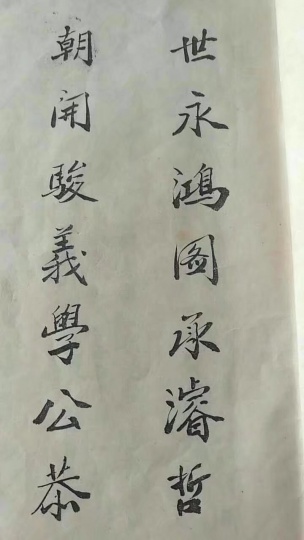 世永鴻圖承濬哲
朝開駿義學公恭